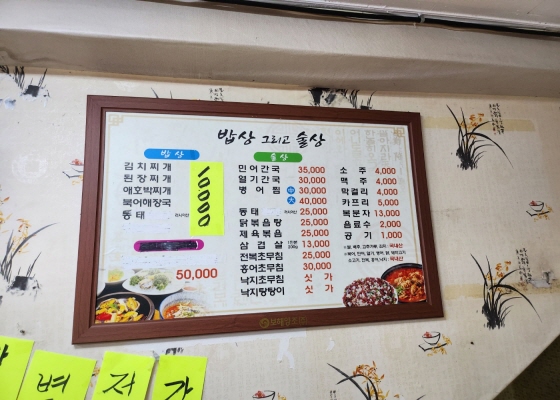 밥상 그리고 술상
밥 상
김치찌개
된장찌개
애호박찌개
북어해장국
동태
10000
50,000
술 상
민어간국 35,000
열기간국 30,000
병어찜 中 30,000
大 40,000
동태 25,000
닭볶음탕 25,000
제육볶음 25,000
삼겹살 13,000
전복초무침 25,000
홍어초무침 30,000
낙지초무침 싯가
낙지탕탕이 싯가
소주 4,000
맥주 4,000
막걸리 4,000
카프리 5,000
복분자 13,000
음료수 2,000
공기 1,000
벽 저 가